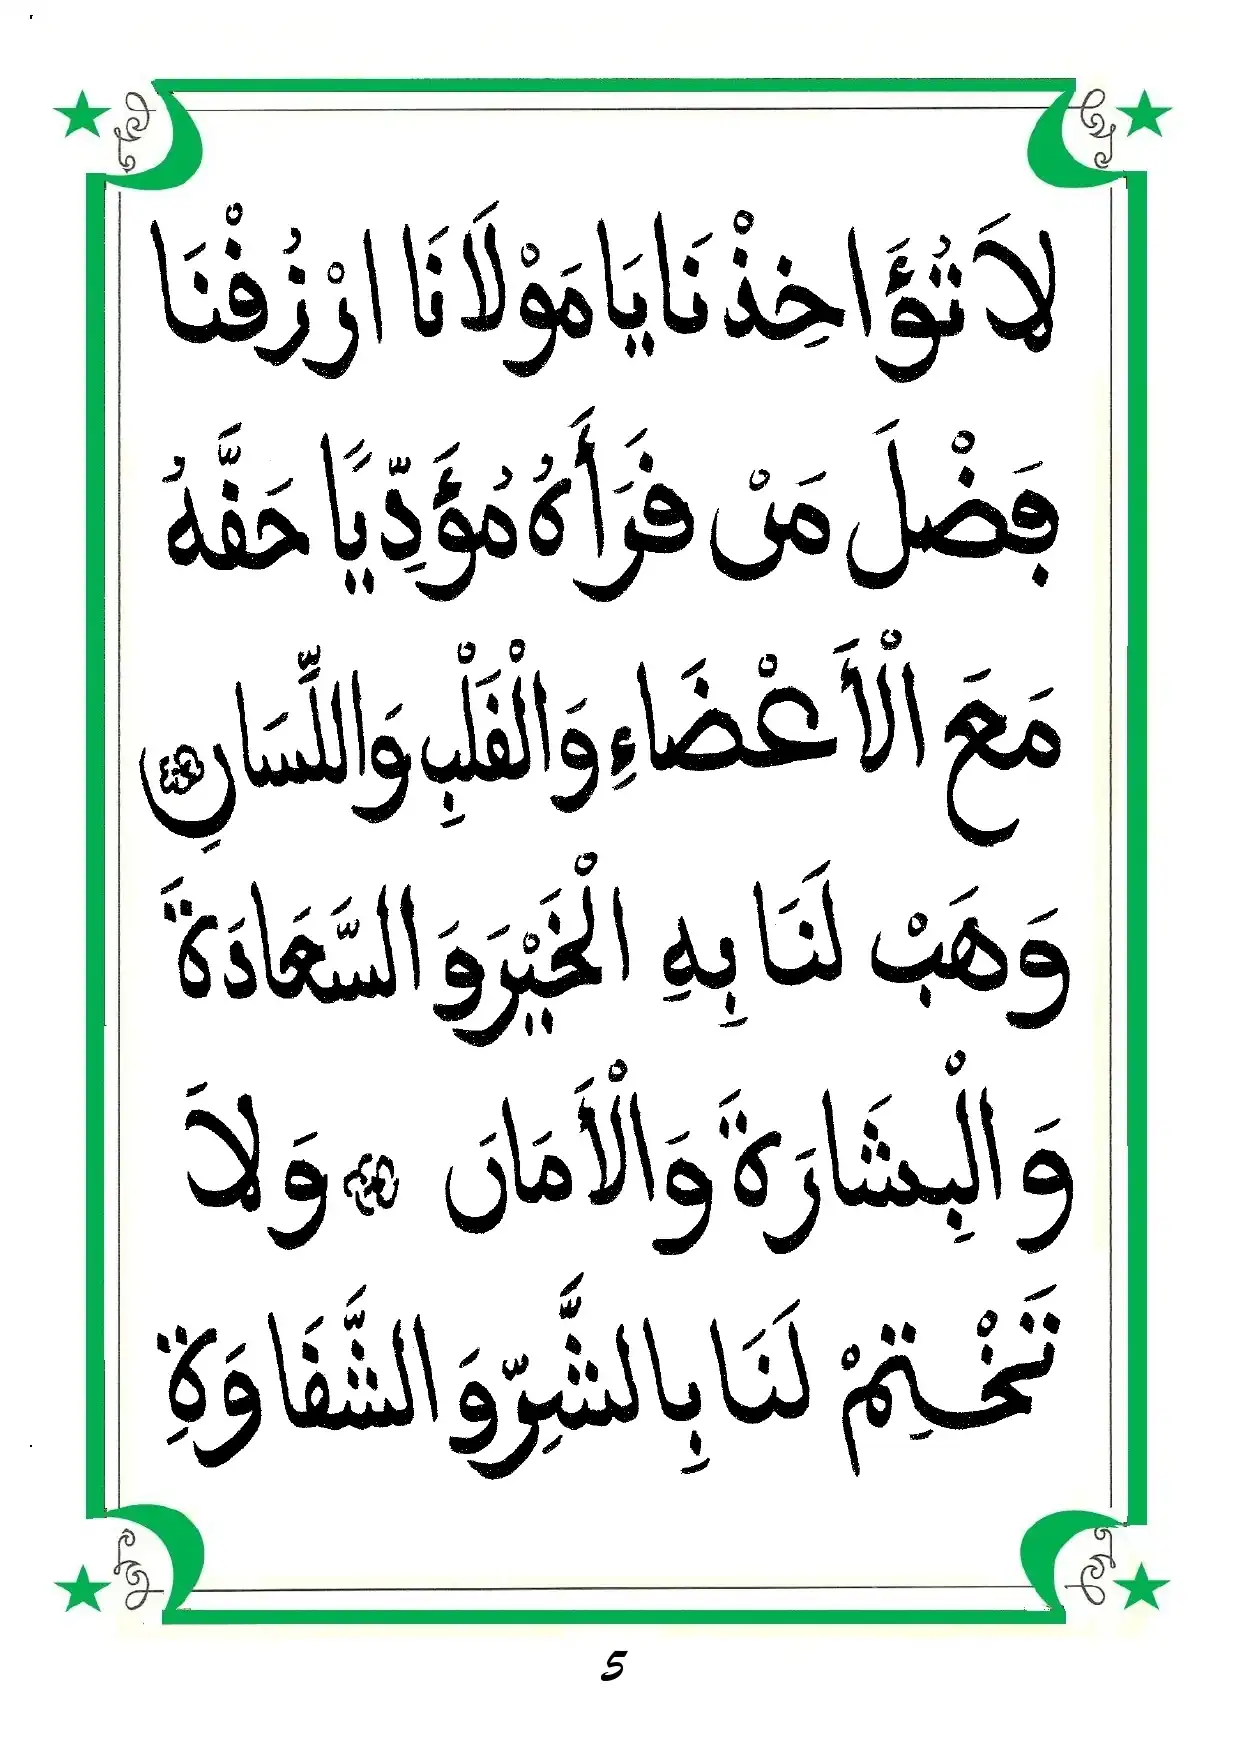 لَا تُؤَاخِذْنَا يَا مَوْلَانَا ارْزُقْنَا
فَضْلَ مَنْ قَرَأَهُ مُؤَدِّيًا حَقَّهُ
مَعَ الْأَعْضَاءِ وَالْقَلْبِ وَاللِّسَانِ
وَهَبْ لَنَا بِهِ الْخَيْرَ وَالسَّعَادَةَ
وَالْبِشَارَةَ وَالْأَمَانَ وَلَا
تَخْتِمْ لَنَا بِالشَّرِّ وَالشَّقَاوَةِ
5